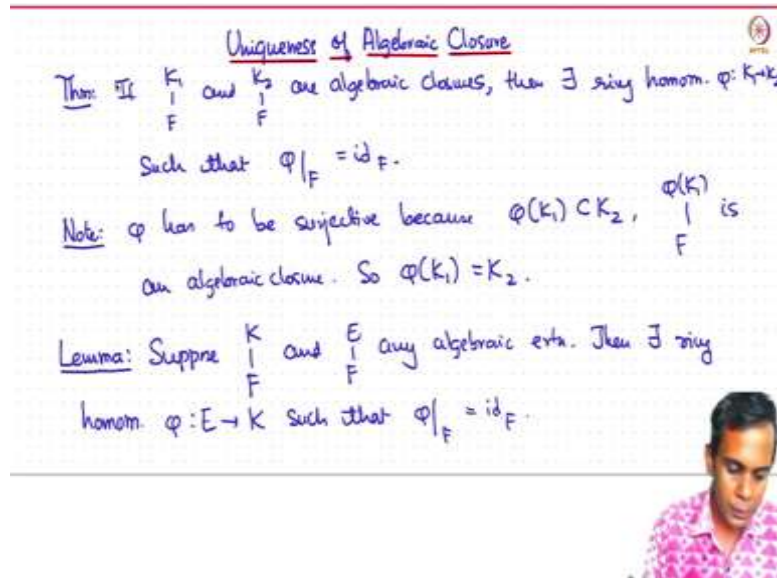 Uniqueness of Algebraic Closure
Thm: If K₁ | F and K₂ | F are algebraic closures, then ∃ ring homom. φ: K₁→K₂
Such that φ|_F = id_F.
Note: φ has to be surjective because φ(K₁) ⊂ K₂, φ(K₁) | F is
an algebraic closure. So φ(K₁) = K₂.
Lemma: Suppse K | F and E | F any algebraic extn. Then ∃ ring
homom. φ: E → K such that φ|_F = id_F.